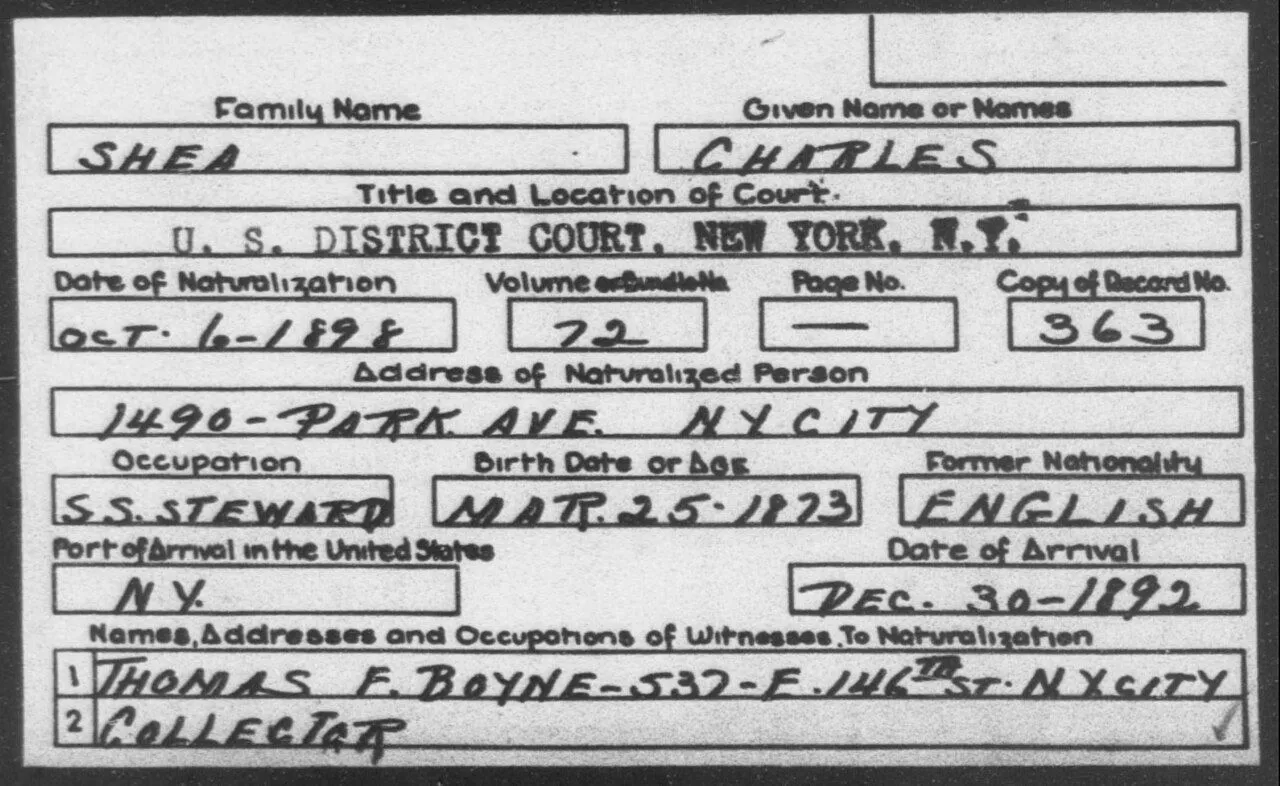 Family Name Given Name or Names
SHEA CHARLES
Title and Location of Court
U. S. DISTRICT COURT, NEW YORK, N.Y.
Date of Naturalization Volume or Bundle No. Page No. Copy of Record No.
OCT. 6-1898 72 — 363
Address of Naturalized Person
1490 - PARK AVE. N Y CITY
Occupation Birth Date or Age Former Nationality
S.S. STEWARD MAR. 25 - 1873 ENGLISH
Port of Arrival in the United States Date of Arrival
N Y. DEC. 30-1892
Names, Addresses and Occupations of Witnesses To Naturalization
1 THOMAS F. BOYNE-537-E.146TH ST. N Y CITY
2 COLLECTOR